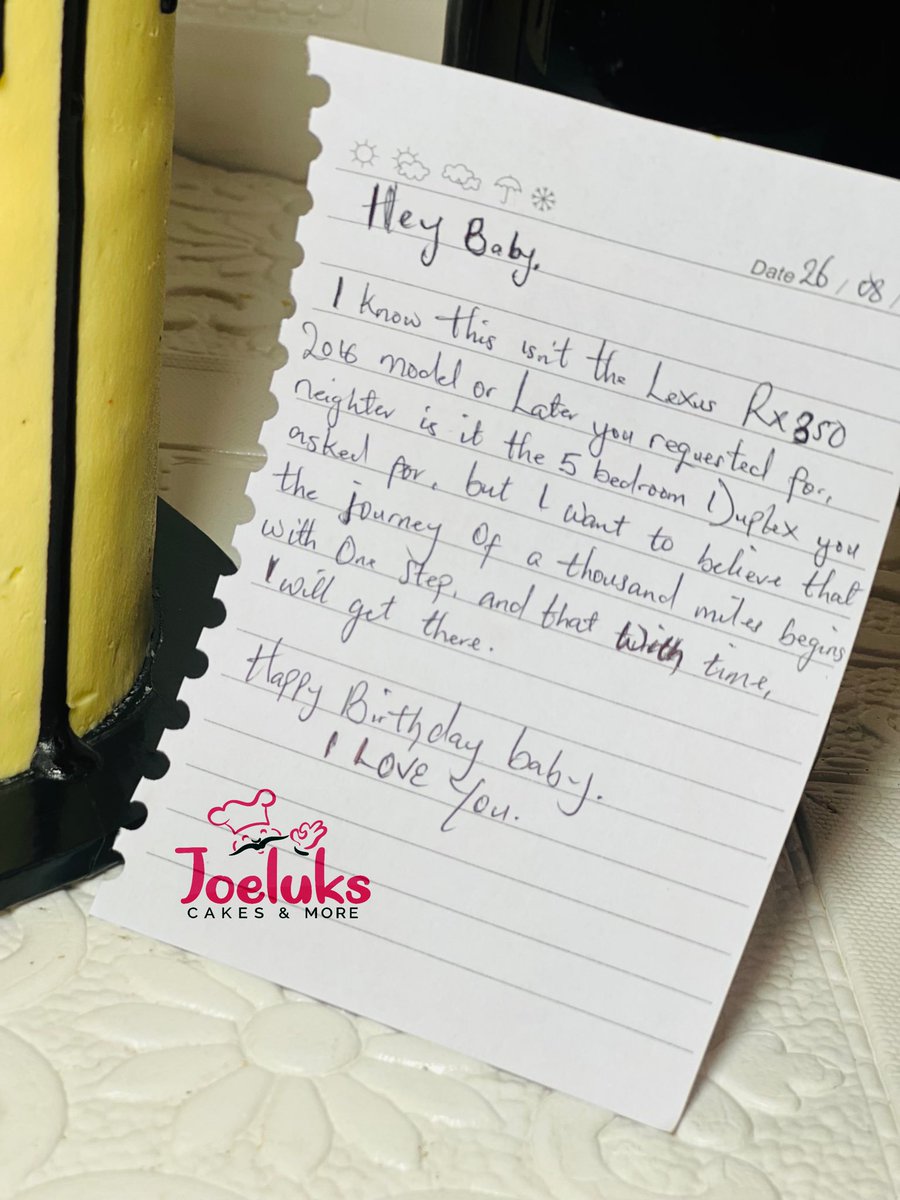 Hey Baby.
Date 26/08/
I know this isn't the Lexus Rx350
2016 model or Later you requested for,
neighter is it the 5 bedroom Duplex you
asked for, but I want to believe that
the journey of a thousand miles begins
with One step, and that with time,
I will get there.
Happy Birthday baby.
I LOVE You.
Joeluks
CAKES & MORE